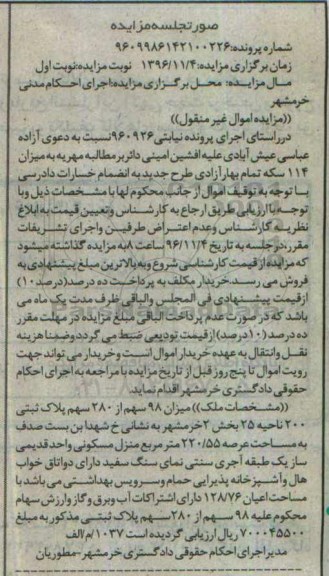 صورتجلسه مزایده
شماره پرونده:۹۶۰۹۹۸۶۱۴۲۱۰۰۲۲۶
زمان برگزاری مزایده:۱۳۹۶/۱۱/۴ نوبت مزایده:نوبت اول
مال مزایده: محل برگزاری مزایده:اجرای احکام مدنی
خرمشهر
((مزایده اموال غیر منقول))
درراستای اجرای پرونده نیابتی ۹۶۰۹۲۶نسبت به دعوی آزاده
عباسی عیش آبادی علیه افشین امینی دائربرمطالبه مهریه به میزان
۱۱۴ سکه تمام بهارآزادی طرح جدید به انضمام خسارات دادرسی
با توجه به توقیف اموال از جانب محکوم لها با مشخصات ذیل وبا
توجه باارزیابی طریق ارجاع به کارشناس وتعیین قیمت به ابلاغ
نظریه کارشناس وعدم اعتراض طرفین واجرای تشریفات
مقرردرجلسه به تاریخ ۹۶/۱۱/۴ ساعت ۸ به مزایده گذاشته میشود
که مزایده از قیمت کارشناسی شروع وبه بالاترین مبلغ پیشنهادی به
فروش می رسد.خریدار مکلف به پرداخت ده درصد(درصد۱۰)
ازقیمت پیشنهادی فی المجلس والباقی ظرف مدت یک ماه می
باشد که درصورت عدم پرداخت الباقی مبلغ مزایده در مهلت مقرر
ده درصد(۱۰درصد)ازقیمت تودیعی ضبط می گردد وضمنا هزینه
نقل وانتقال به عهده خریدار اموال است وخریدار می تواند جهت
رویت اموال تا پنج روز قبل از تاریخ مزایده با مراجعه به اجرای احکام
حقوقی دادگستری خرمشهر اقدام نماید.
((مشخصات ملک))میزان ۹۸سهم از ۲۸۰سهم پلاک ثبتی
۲۰۰ ناحیه ۲۵ بخش ۲خرمشهر به نشانی خ شهدا بن بست صدف
به مساحت عرصه ۲۲۰/۵۵ متر مربع منزل مسکونی واحد قدیمی
ساز یک طبقه آجری سنتی نمای سنگ سفید دارای دواتاق خواب
هال وآشپزخانه پذیرایی حمام وسرویس بهداشتی می باشد با
مساحت اعیان ۱۲۸/۷۶ دارای اشتراکات آب وبرق وگاز وارزش سهام
محکوم علیه ۹۸سهم از ۲۸۰سهم پلاک ثبتی مذکور به مبلغ
۷۰۰۰۴۵۵۰۰ ریال ارزیابی گردیده است ۱۰۳۷/م/الف
مدیراجرای احکام حقوقی دادگستری خرمشهر-مطوریان